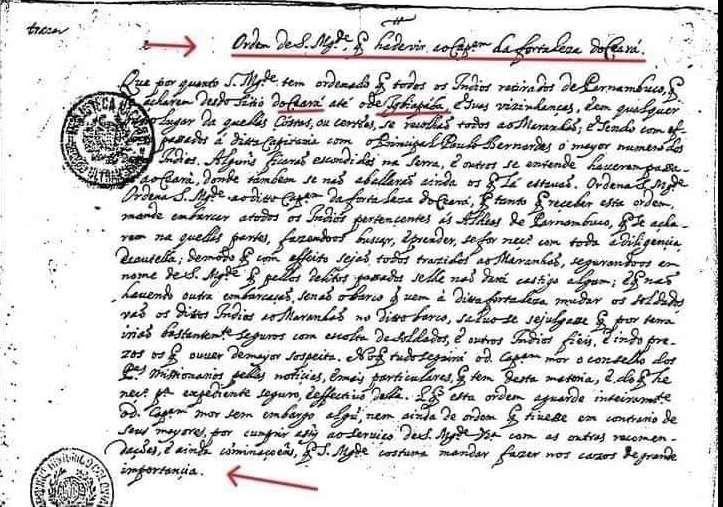 trazer
Ordem de S. Mg.de, q̃ hade vir ao Cap.am da fortaleza do Ceará.
Que por quanto S. Mg.de tem ordenado q̃ todos os Indios retirados de Pernambuco, q̃
acharem desdo Sitio do Ceará até o de Ibiapába, e suas vizinhanças, e em qualquer
lugar da quellas Costas, ou certões, se recolhaõ todos ao Maranhaõ; e sendo com ef-
passados à ditta Capitania com o Principal Paulo Bernardes o mayor numero dos
Indios. Alguns ficaraõ escondidos na Serra, e outros se entende haverem passa-
ao Ceará, donde tambem se naõ aballaraõ ainda os q̃ lá estavaõ. Ordena S. Mg.de
Ordena S. Mg.de ao ditto Cap.am da fortaleza do Ceará, q̃ tanto q̃ receber esta ordem
mande embarcar a todos os Indios pertencentes às Aldeas de Pernambuco, q̃ se acha-
rem na quellas partes, fazendoos buscar, e prender, se for nec.o com toda a diligencia
e cautella; demodo q̃ com effeito sejaõ todos trazidos ao Maranhaõ, segurandoos em
nome de S. Mg.de q̃ pellos delitos passados selle naõ dará castigo algum; e q̃ naõ
havendo outra embarcaçaõ, senaõ o barco q̃ vem à ditta fortaleza mudar os soldados,
vaõ os dittos Indios ao Maranhaõ no ditto barco, salvo se se julgasse q̃ por terra
iriaõ bastantem.te seguros com escolta de soldados, e outros Indios fieis, e indo pre-
zos os q̃ ouver de major sospeita. No q̃ tudo seguirá o d. Cap.am mor o conselho dos
P.es Missionarios pellas noticias, e mais particulares, q̃ tem desta materia, e do q̃ he
nec.o p.a expediente seguro, e effectivo della. E q̃ esta ordem aguarde inteiram.te
o d. Cap.am mor sem embargo algũ, nem ainda de ordem q̃ tivesse em contrario de
seus mayores, por cumprir assy ao serviço de S. Mg.de com as outras recomen-
dações, e ainda cominações, q̃ S. Mg.de costuma mandar fazer nos cazos de grande
importançia.